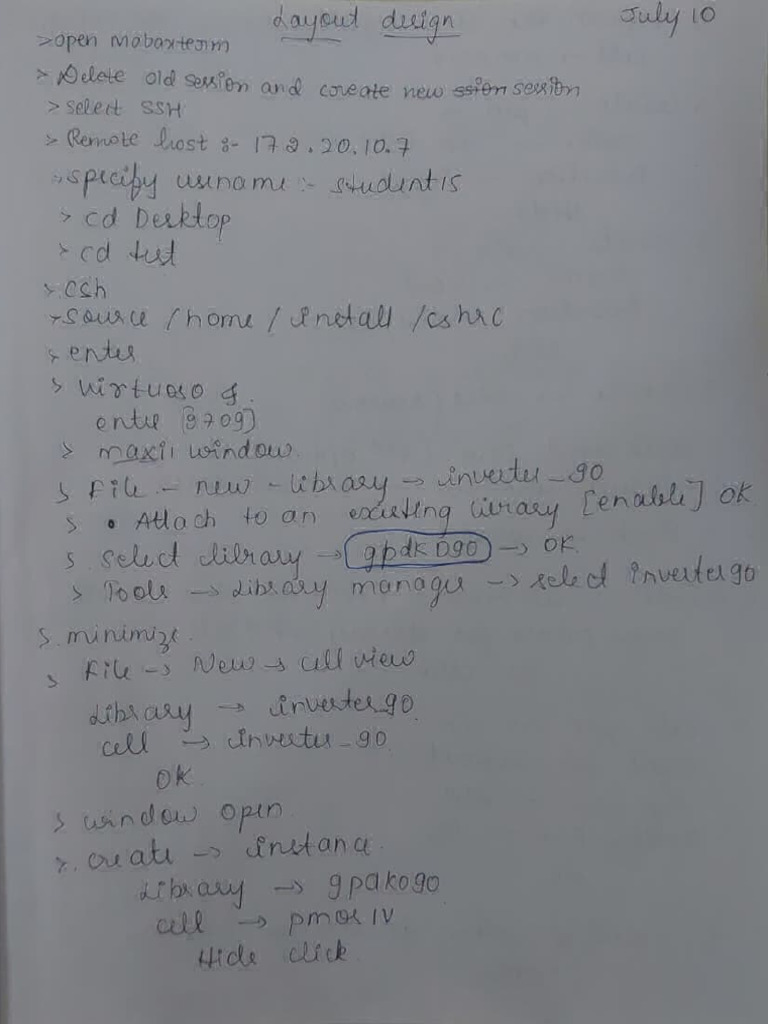 Layout design July 10
>open mobaxterm
> Delete old session and coveate new ssion session
> select SSH
> Remote host :- 172.20.10.7
> specify usename :- student15
> cd Desktop
> cd test
> csh
> source /home / install /cshrc
> enter
> virtuoso &
enter [9709]
> maxii window
> File - new - library → inverter_90
> • Attach to an existing library [enable] OK
> select library → gpdk090 → OK
> Tools → Library manager → select inverter90
> minimize
> File → New → cell view
Library → inverter_90
cell → inverter_90
OK
> window open
> create → instance
Library → gpdk090
cell → pmos1V
Hide click